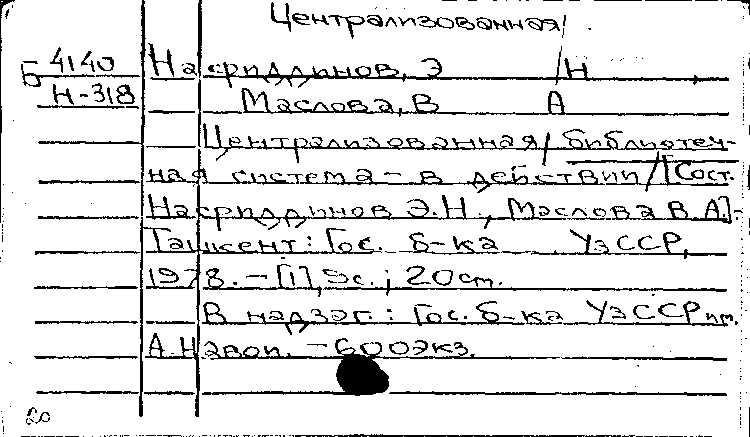 Централизованная/.
Б 4140 Насриддинов, Э /Н
Н-318 Маслова, В А
Централизованная/ библиотеч-
ная система - в действии/ [Сост.
Насриддинов Э.Н., Маслова В.А.].-
Ташкент: Гос. б-ка УзССР,
1978. - [1], 9с.; 20см.
В надзаг.: Гос. б-ка УзССР им.
А. Навои. - 600экз.
20